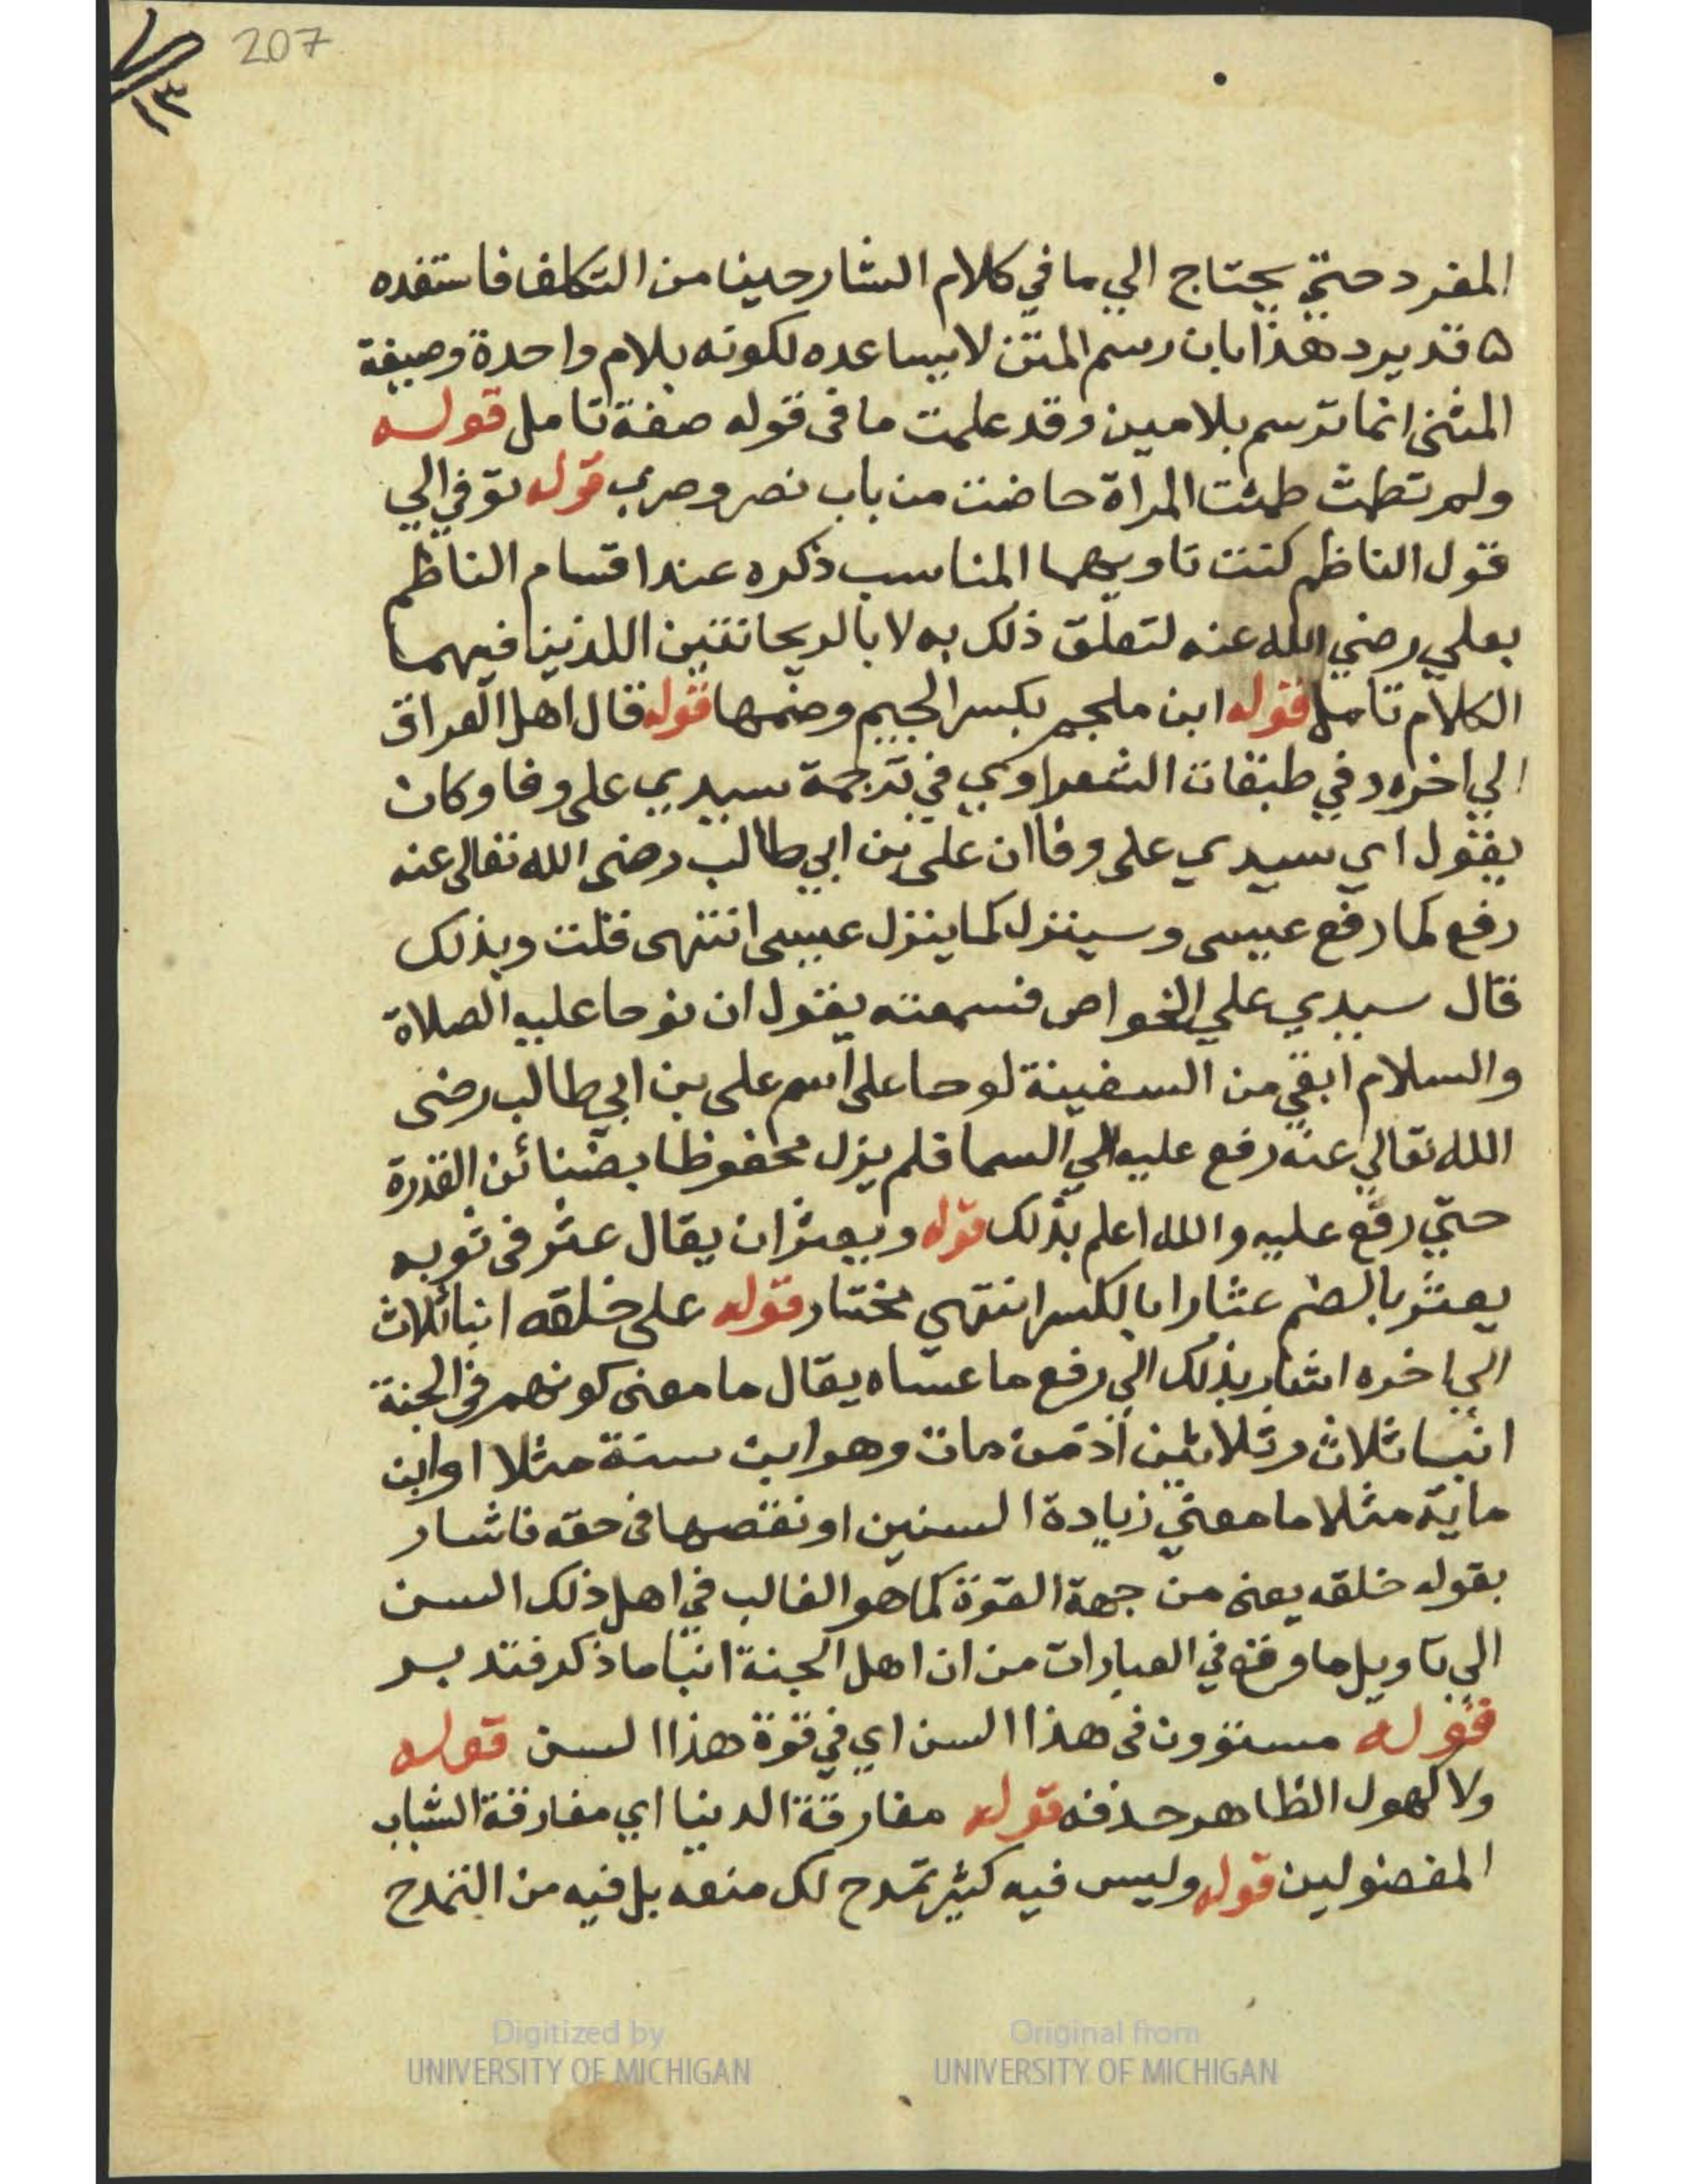 207
المفرد حتي يحتاج الي ما في كلام الشارحينا من التكلف فاستفده
ه قد يرد هذا بان رسم المتن لا يساعده لكونه بلام واحدة وصيغة
المثنى انما ترسم بلامين وقد علمت ما فى قوله صفة تامل قوله
ولم تطمث طمثت المراة حاضت من باب نصر وضرب قوله توفي الي
قول الناظم كنت تاويهما المناسب ذكره عند اقسام الناظم
بعلي رضي الله عنه لتعلق ذلك به لا بالريحانتين اللذينا فيهما
الكلام تامل قوله ابن ملجم بكسر الجيم وضمها قوله قال اهل العراق
الي اخره وفي طبقات الشعراوي في ترجمة سيدي على وفا وكان
يقول اي سيدي على وفا ان على بن ابي طالب رضى الله تعالى عنه
رفع كما رفع عيسى وسينزل كما ينزل عيسى انتهى قلت وبذلك
قال سيدي علي الخواص فسمعته يقول ان نوحا عليه الصلاة
والسلام ابقي من السفينة لوحا على اسم على بن ابي طالب رضى
الله تعالي عنه رفع عليه الي السما فلم يزل محفوظا بضنائن القدرة
حتي رفع عليه والله اعلم بذلك قوله ويعثر ان يقال عثر فى ثوبه
يعثر بالضم عثارا بالكسر انتهي مختار قوله على خلقه ابنا ثلاث
الي اخره اشار بذلك الي رفع ما عساه يقال ما معنى كونهم في الجنة
ابنا ثلاث وثلاثين اذ من مات وهو ابن سنة مثلا او ابن
ماية مثلا ما معني زيادة السنين او نقصها فى حقه فاشار
بقوله خلقه يعنى من جهة القوة كما هو الغالب في اهل ذلك السن
الي تاويل ما وقع في العبارات من ان اهل الجنة ابنا ما ذكر فتدبر
قوله مستوون فى هذا السن اي في قوة هذا السن قوله
ولا كهول الظاهر حذفه قوله مفارقة الدنيا اي مفارقة الشباب
المفضولين قوله وليس فيه كثير تمدح لك منعه بل فيه من التمدح
Digitized by
UNIVERSITY OF MICHIGAN
Original from
UNIVERSITY OF MICHIGAN